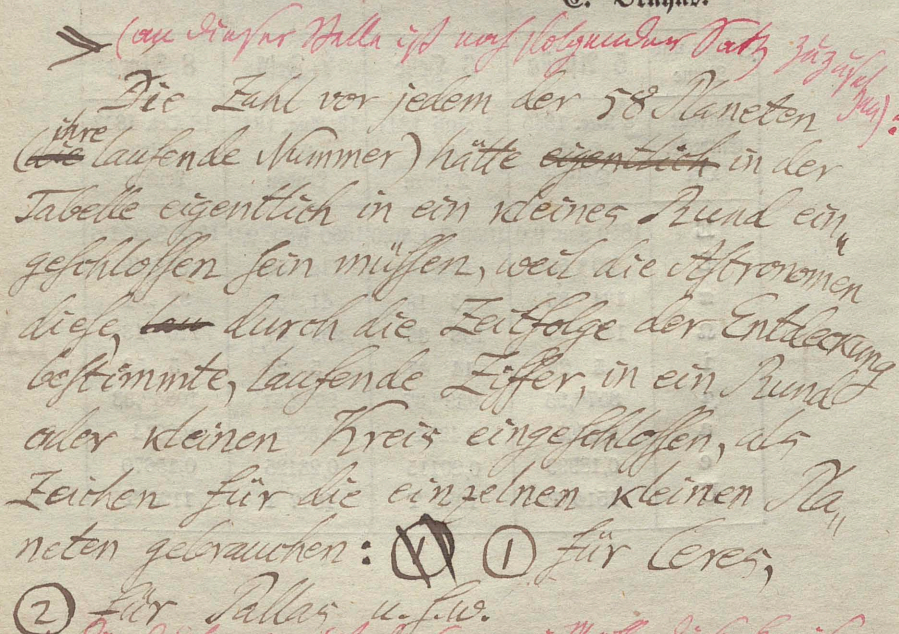 (an dieser Stelle ist noch folgender Satz zuzusetzen):
Die Zahl vor jedem der 58 Planeten
(die ihre laufende Nummer) hätte eigentlich in der
Tabelle eigentlich in ein kleines Rund ein„
geschlossen sein müssen, weil die Astronomen
diese, lau durch die Zeitfolge der Entdeckung
bestimmte, laufende Ziffer, in ein Rund
oder kleinen Kreis eingeschlossen, als
Zeichen für die einzelnen kleinen Pla„
neten gebrauchen: 1 ① für Ceres,
② für Pallas u.s.w.